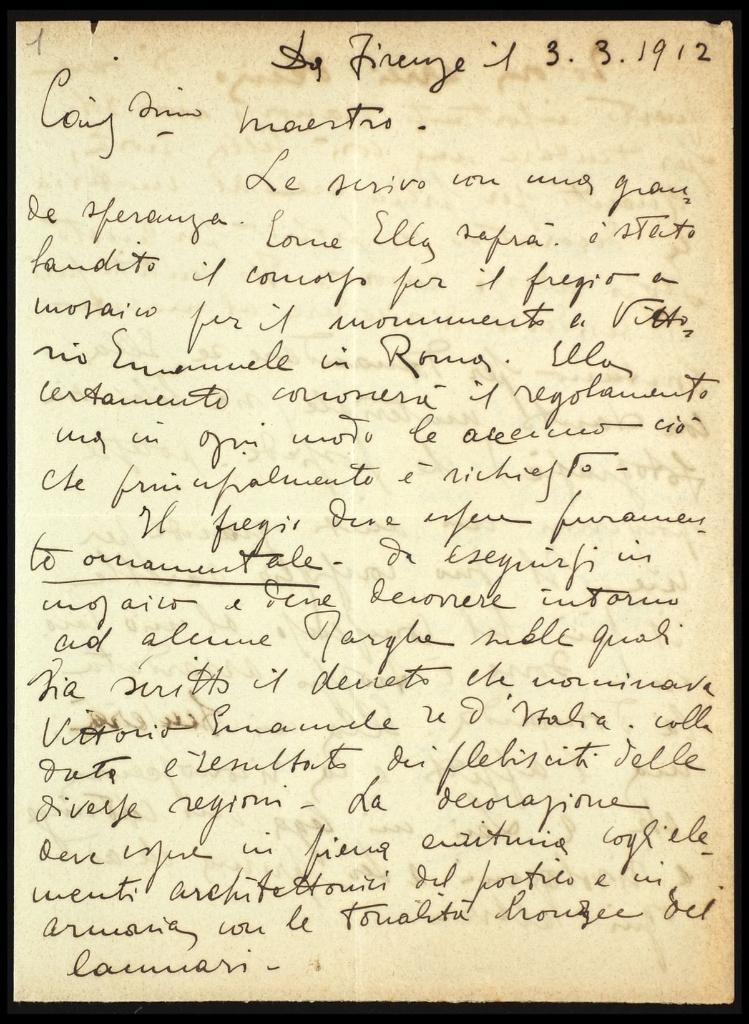 1
Da Firenze il 3.3.1912
Carissimo maestro.
Le scrivo con una gran-
de speranza. Come Ella saprà. è stato
bandito il concorso per il fregio a
mosaico per il monumento a Vitto-
rio Emanuele in Roma. Ella
certamente conoscerà il regolamento
ma in ogni modo le accenno ciò
che principalmente è richiesto -
Il fregio deve essere puramen-
te ornamentale - da eseguirsi in
mosaico e deve decorrere intorno
ad alcune Targhe sulle quali
sia scritto il decreto che nominava
Vittorio Emanuele re d'Italia. colla
data e resultato dei plebisciti delle
diverse regioni - La decorazione
deve essere in piena euritmia cogli ele-
menti architettonici del portico e in
armonia con le tonalità bronzee del
lacunari -